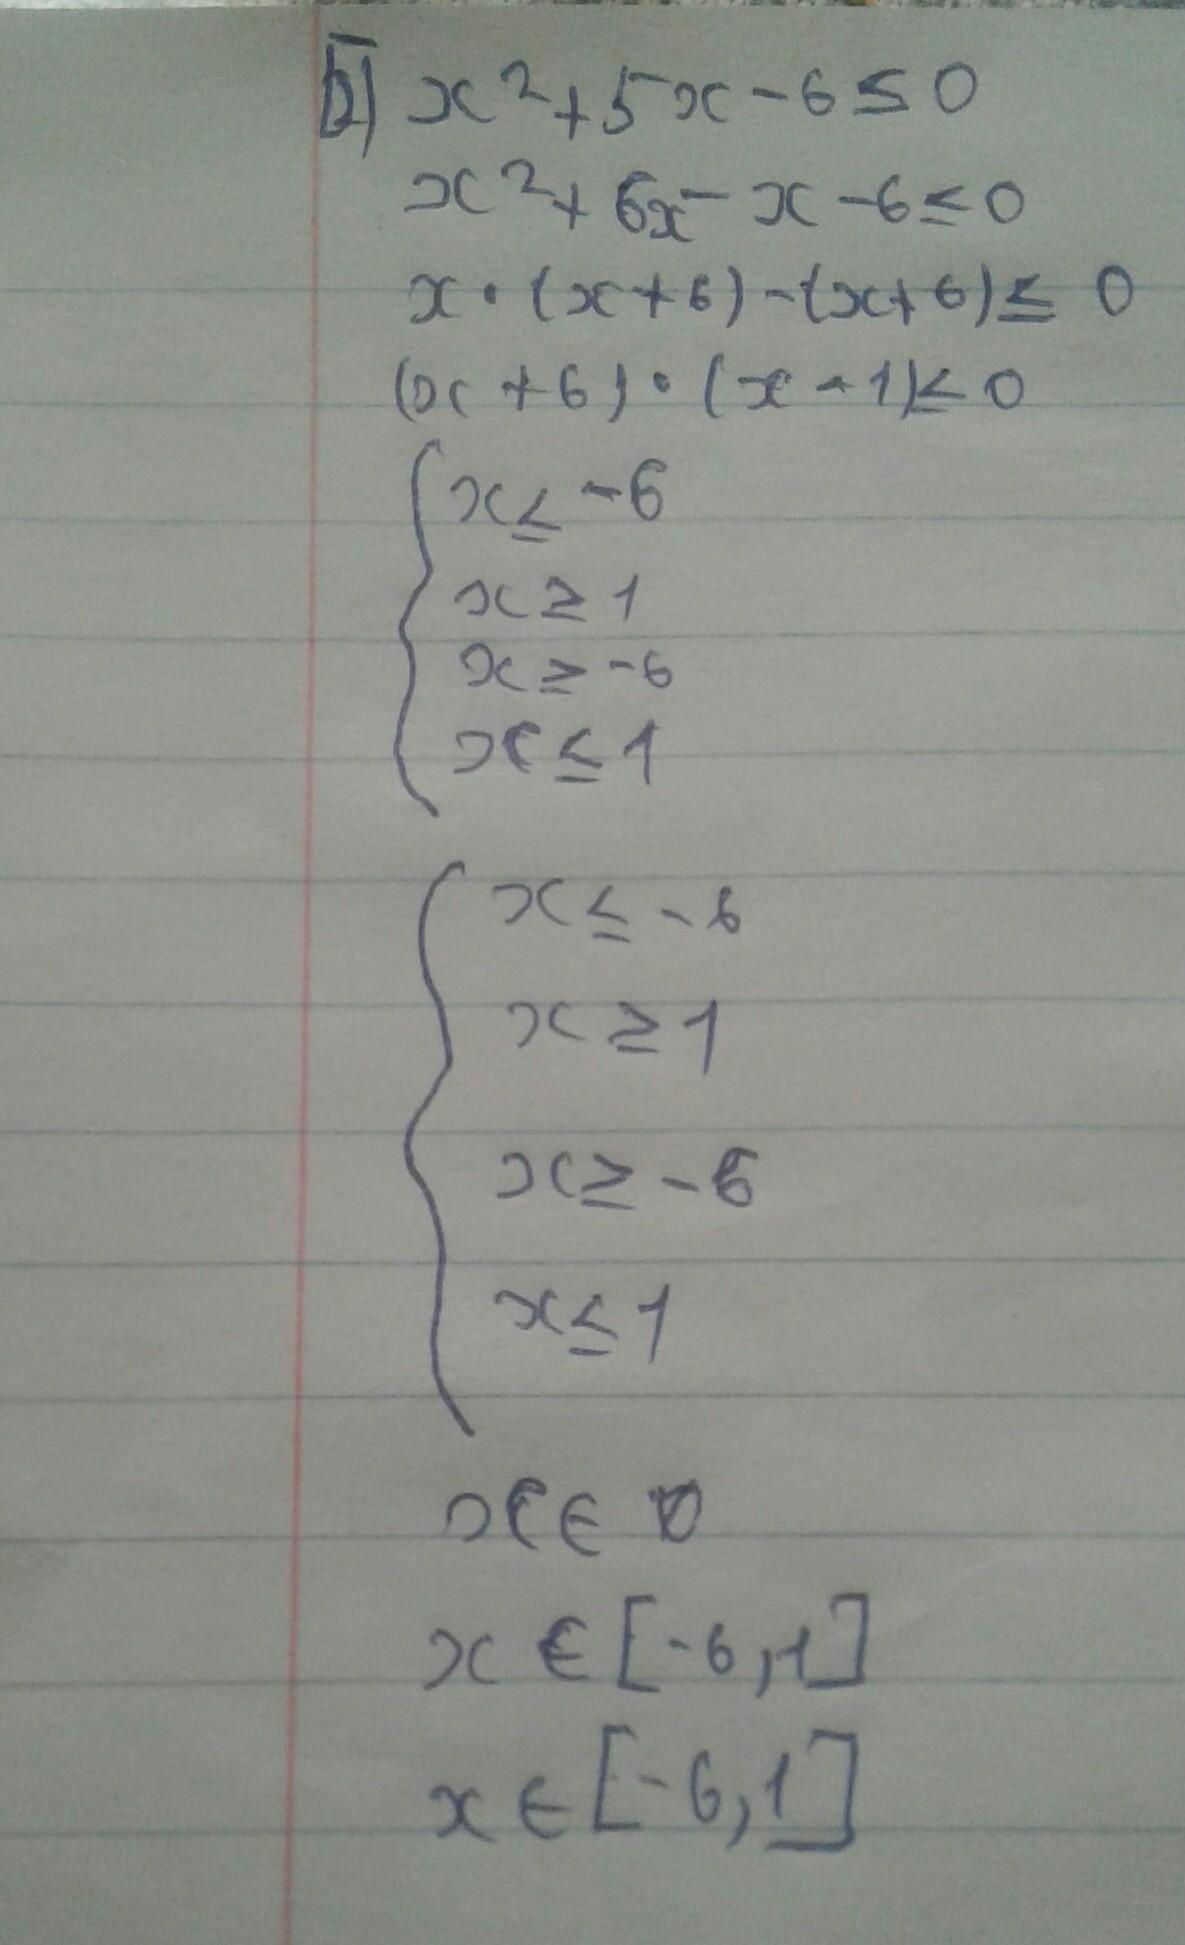 b) x² + 5x - 6 ≤ 0
x² + 6x - x - 6 ≤ 0
x • (x + 6) - (x + 6) ≤ 0
(x + 6) • (x - 1) ≤ 0
x ≤ -6
x ≥ 1
x ≥ -6
x ≤ 1
x ≤ -6
x ≥ 1
x ≥ -6
x ≤ 1
x ∈ ∅
x ∈ [-6,1]
x ∈ [-6,1]